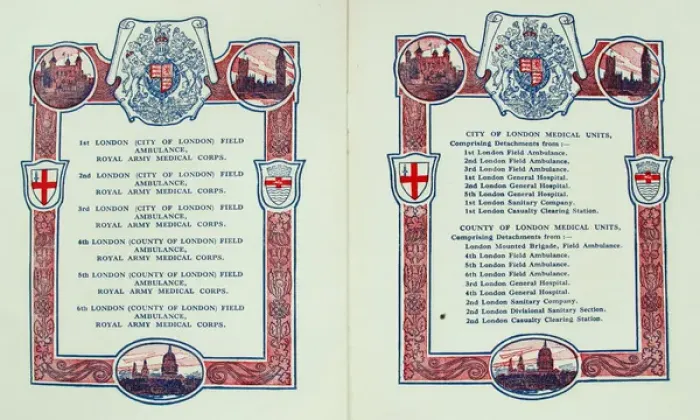 1st LONDON (CITY OF LONDON) FIELD
AMBULANCE,
ROYAL ARMY MEDICAL CORPS.
2nd LONDON (CITY OF LONDON) FIELD
AMBULANCE,
ROYAL ARMY MEDICAL CORPS.
3rd LONDON (CITY OF LONDON) FIELD
AMBULANCE,
ROYAL ARMY MEDICAL CORPS.
4th LONDON (COUNTY OF LONDON) FIELD
AMBULANCE,
ROYAL ARMY MEDICAL CORPS.
5th LONDON (COUNTY OF LONDON) FIELD
AMBULANCE,
ROYAL ARMY MEDICAL CORPS.
6th LONDON (COUNTY OF LONDON) FIELD
AMBULANCE,
ROYAL ARMY MEDICAL CORPS.
CITY OF LONDON MEDICAL UNITS,
Comprising Detachments from :—
1st London Field Ambulance.
2nd London Field Ambulance.
3rd London Field Ambulance.
1st London General Hospital.
2nd London General Hospital.
5th London General Hospital.
1st London Sanitary Company.
1st London Casualty Clearing Station.
COUNTY OF LONDON MEDICAL UNITS,
Comprising Detachments from :—
London Mounted Brigade, Field Ambulance.
4th London Field Ambulance.
5th London Field Ambulance.
6th London Field Ambulance.
3rd London General Hospital.
4th London General Hospital.
2nd London Sanitary Company.
2nd London Divisional Sanitary Section.
2nd London Casualty Clearing Station.